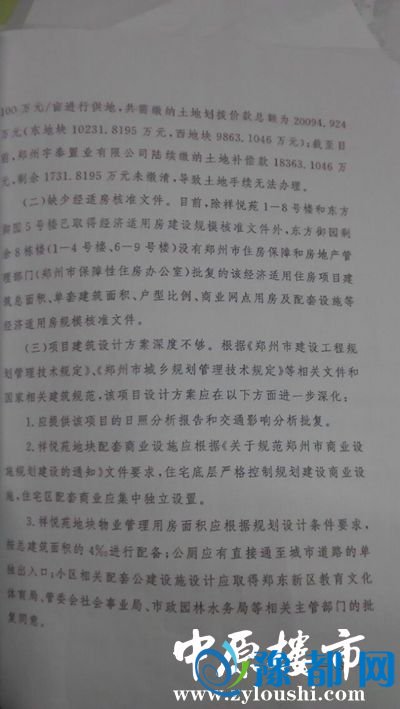 100万元/亩进行供地,共需缴纳土地划拨价款总额为20094.924
万元(东地块10231.8195万元,西地块9863.1046万元);截至目
前,郑州宇泰置业有限公司陆续缴纳土地补偿款18363.1046万
元,剩余1731.8195万元未缴清,导致土地手续无法办理。
(二)缺少经适房核准文件。目前,除祥悦苑1-8号楼和东方
御园5号楼已取得经济适用房建设规模核准文件外,东方御园剩
余8栋楼(1-4号楼、6-9号楼)没有郑州市住房保障和房地产管
理部门(郑州市保障性住房办公室)批复的该经济适用住房项目建
筑总面积、单套建筑面积、户型比例、商业网点用房及配套设施等
经济适用房规模核准文件。
(三)项目建筑设计方案深度不够。根据《郑州市建设工程规
划管理技术规定》、《郑州市城乡规划管理技术规定》等相关文件和
国家相关建筑规范,该项目设计方案应在以下方面进一步深化:
1.应提供该项目的日照分析报告和交通影响分析批复。
2.祥悦苑地块配套商业设施应根据《关于规范郑州市商业设
施规划建设的通知》文件要求,住宅底层严格控制规划建设商业设
施,住宅区配套商业应集中独立设置。
3.祥悦苑地块物业管理用房面积应根据规划设计条件要求,
按总建筑面积的4‰进行配备;公厕应有直接通至城市道路的单
独出入口;小区相关配套公建设施设计应取得郑东新区教育文化
体育局、管委会社会事业局、市政园林水务局等相关主管部门的批
复同意。
中原楼市
豫都网
www.zyloushi.com